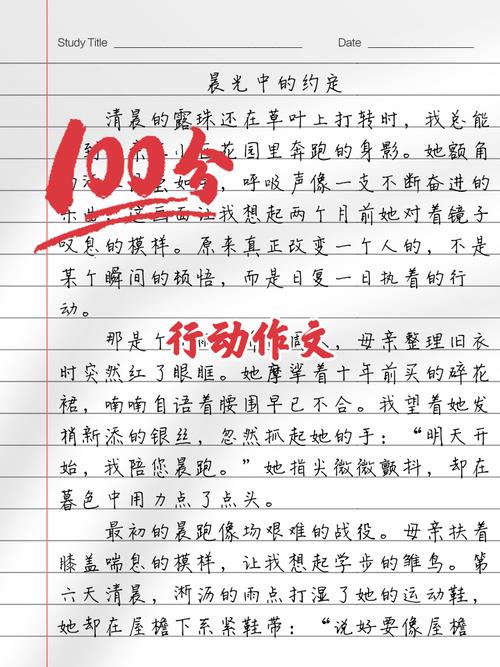 Study Title
Date
晨光中的约定
清晨的露珠还在草叶上打转时，我总能
到 小 花园里奔跑的身影。她额角
100分
，呼吸声像一支不断奋进的
乐曲。这画面让我想起两个月前她对着镜子
叹息的模样。原来真正改变一个人的，不是
某个瞬间的顿悟，而是日复一日执着的行
动。
那是个 ，母亲整理旧衣
行动作文
时突然红了眼眶。她摩挲着十年前买的碎花
裙，喃喃自语着腰围早已不合。我望着她发
梢新添的银丝，忽然抓起她的手：“明天开
始，我陪您晨跑。”她指尖微微颤抖，却在
暮色中用力点了点头。
最初的晨跑像场艰难的战役。母亲扶着
膝盖喘息的模样，让我想起学步的雏鸟。第
六天清晨，淅沥的雨点打湿了她的运动鞋，
她却在屋檐下系紧鞋带：“说好要像屋檐